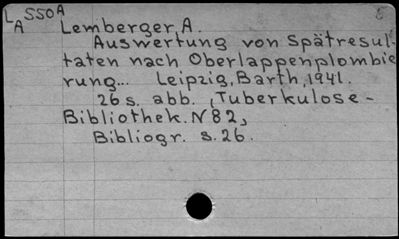 LA 550A
Lemberger A.
Auswertung von Spätresul-
taten nach Oberlappenplombie
rung... Leipzig, Barth, 1941.
26 s. abb. (Tuberkulose-
Bibliothek. N 82)
Bibliogr. s. 26.